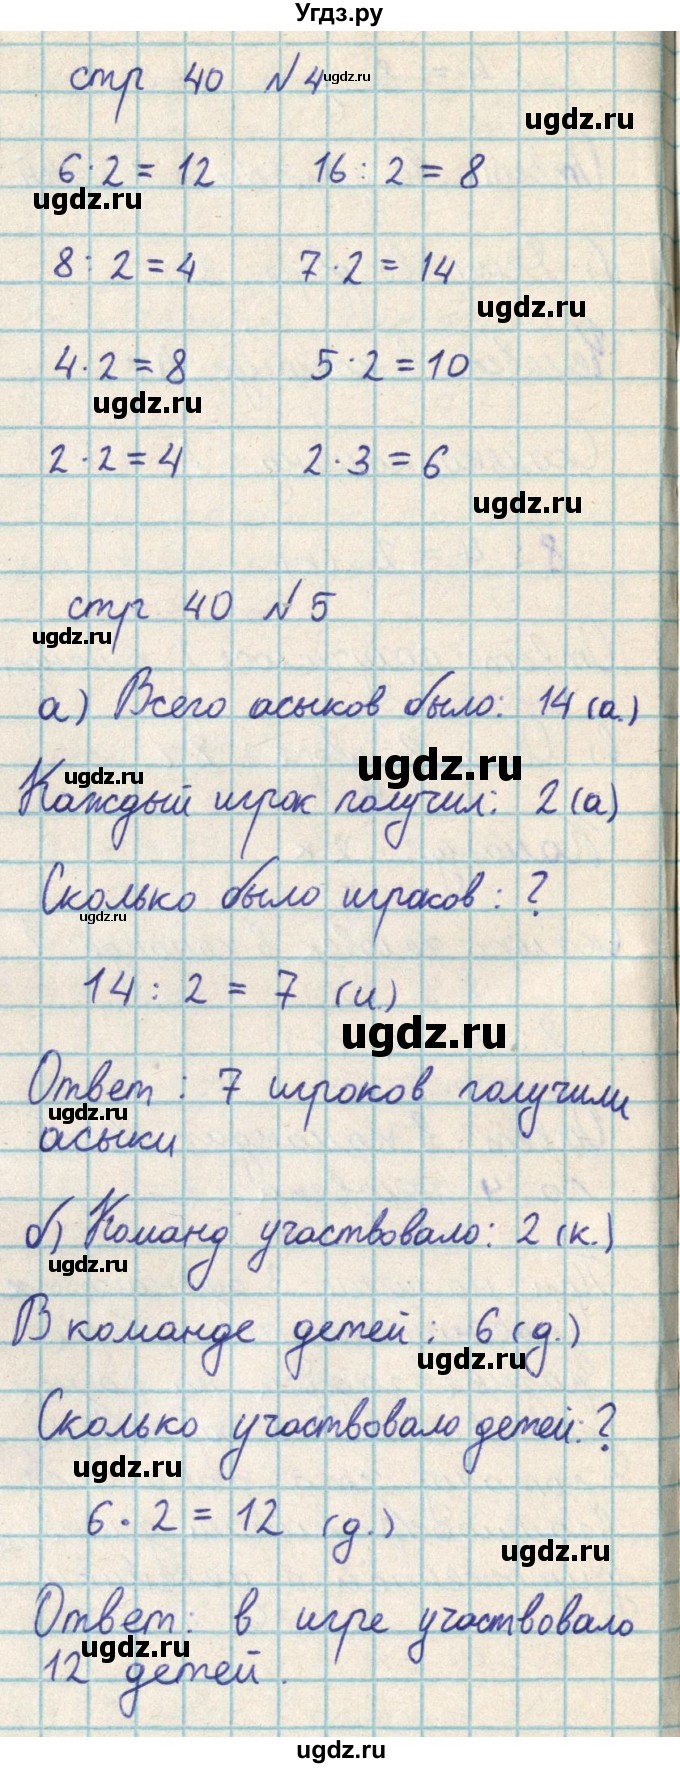 Угдз.ру
стр 40 №4
ugdz.ru
ugdz.ru
6·2=12 16:2=8
ugdz.ru
8:2=4 7·2=14
ugdz.ru
4·2=8 5·2=10
ugdz.ru
2·2=4 2·3=6
ugdz.ru
стр 40 №5
ugdz.ru
а) Всего асыков было: 14 (а.)
ugdz.ru
ugdz.ru
Каждый игрок получил: 2 (а)
Сколько было игроков: ?
ugdz.ru
14:2=7 (и)
ugdz.ru
Ответ: 7 игроков получили
ugdz.ru
асыки
б) Команд участвовало: 2 (к.)
ugdz.ru
В команде детей: 6 (д.)
ugdz.ru
Сколько участвовало детей: ?
ugdz.ru
6·2=12 (д.)
ugdz.ru
Ответ: в игре участвовало
ugdz.ru
12 детей.
ugdz.ru